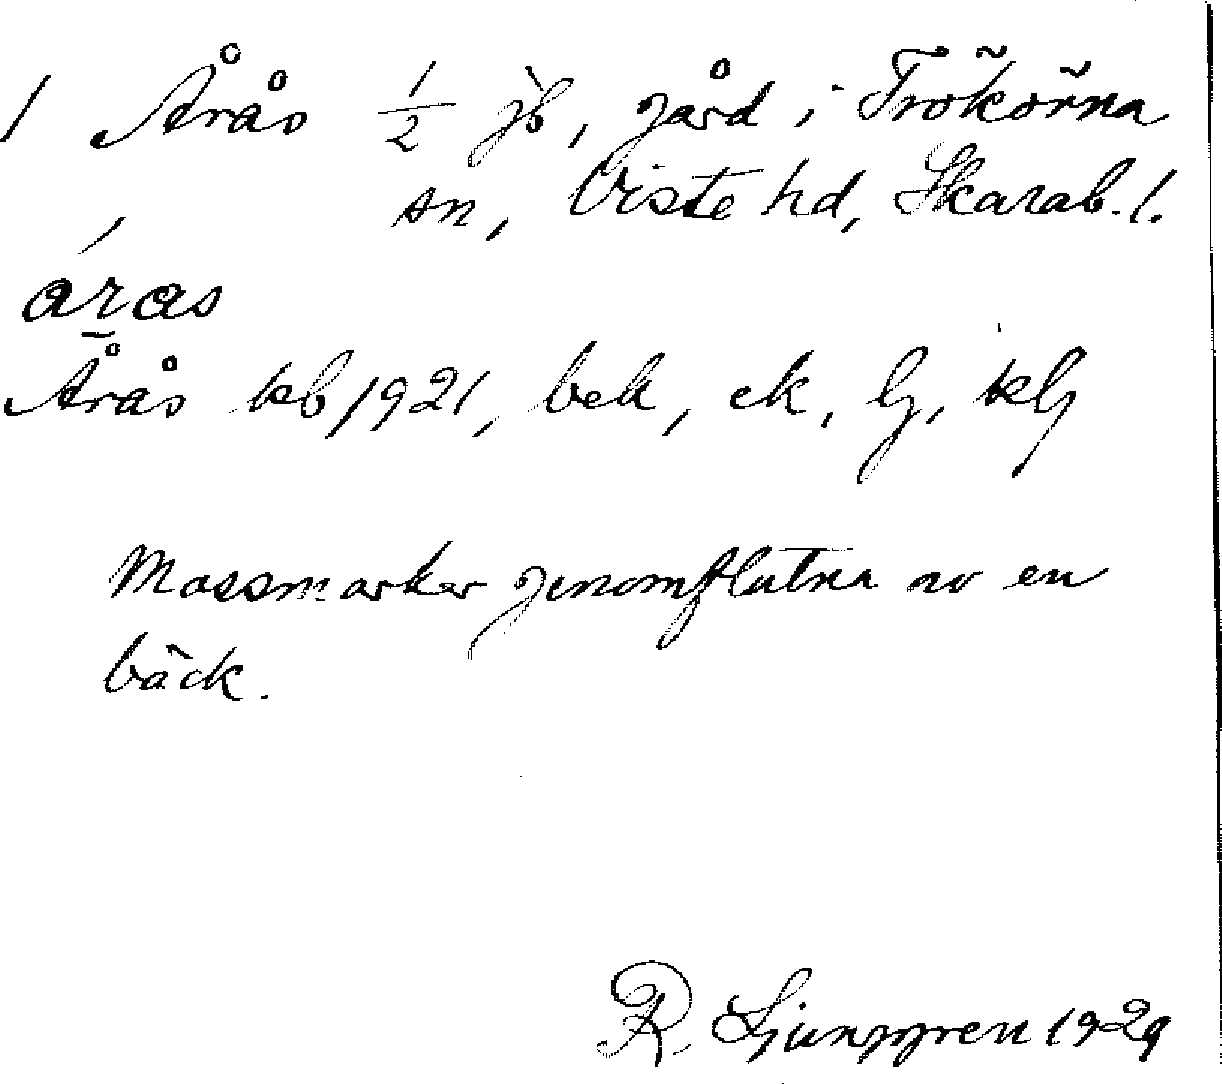 1 Årås 1/2 jb, gård i Trökörna
sn, Viste hd, Skarab. l.
áras
Årås kb 1921, bek, ek, lj, klj
Mossmarker genomflutna av en
bäck.
R. Ljunggren 1929